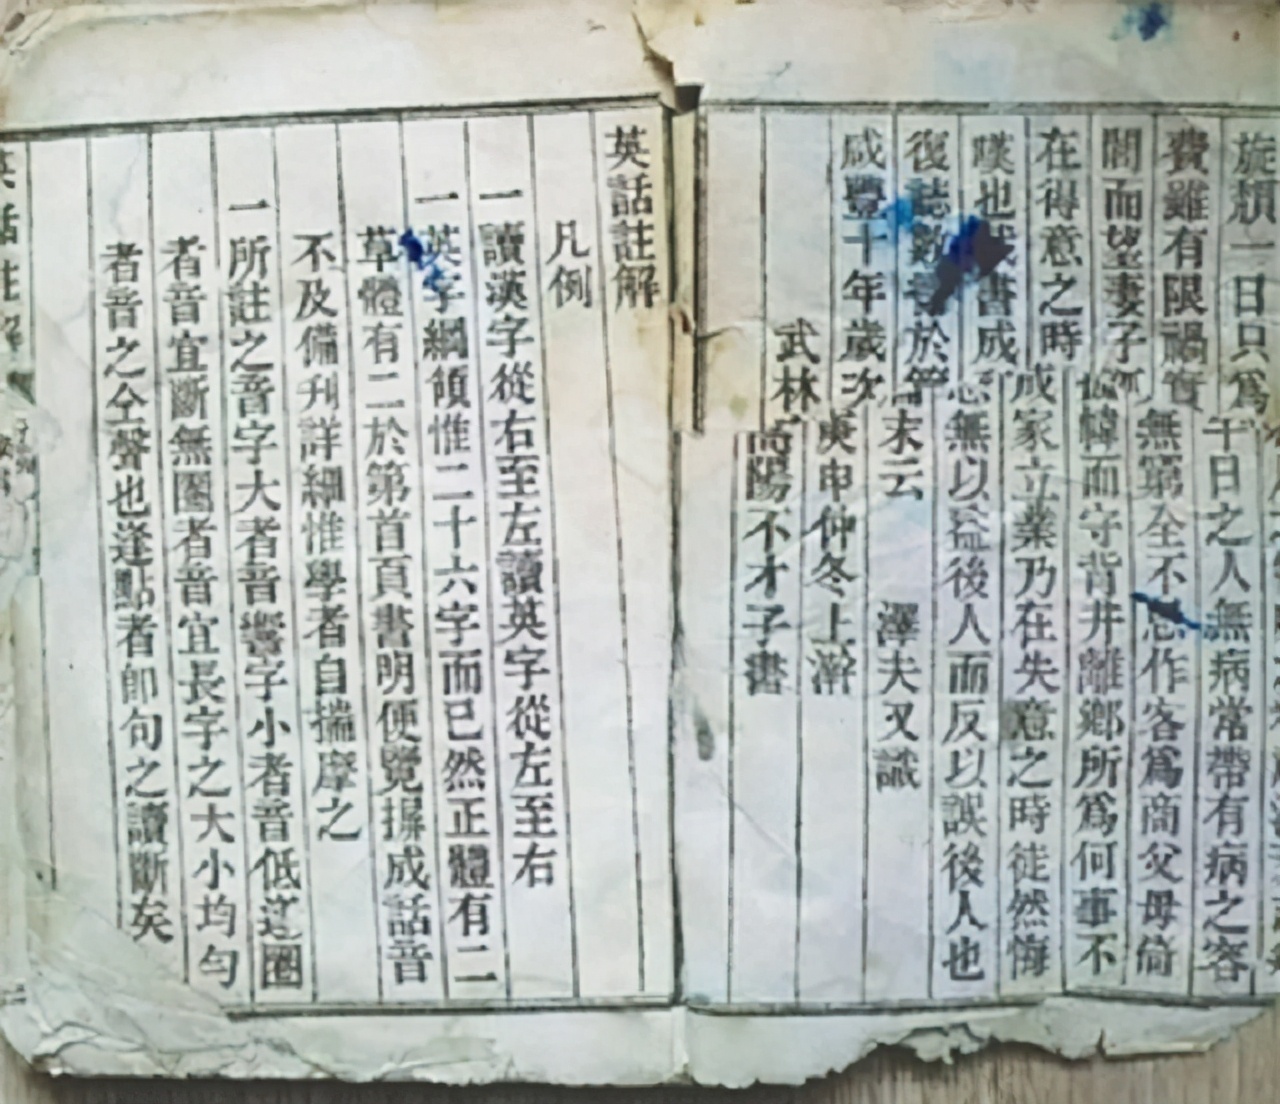 旋頹一日只爲千日之人無病常帶有病之容
費雖有限禍實無窮全不思作客爲商父母倚
閭而望妻子
幃而守背井離鄉所爲何事不
在得意之時成家立業乃在失意之時徒然悔
嘆也
書成
無以益後人而反以誤後人也
復誌數
於
末云
澤夫又識
咸豐十年歲次庚申仲冬上澣
武林
陽不才子書
英話註解
凡例
一讀漢字從右至左讀英字從左至右
一英字綱領惟二十六字而已然正體有二
草體有二於第首頁書明便覽摒成話音
不及備刋詳細惟學者自揣摩之
一所註之音字大者音響字小者音低逢圈
者音宜斷無圈者音宜長字之大小均勻
者音之仝聲也逢點者卽句之讀斷矣
英話註解